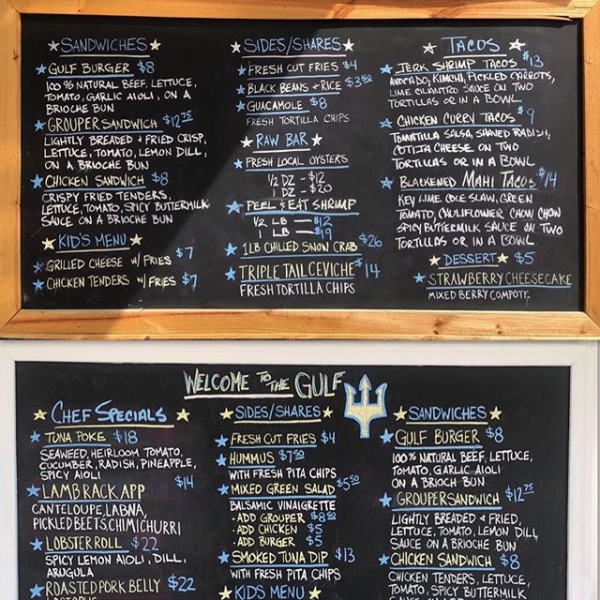 SANDWICHES
GULF BURGER $8
100% NATURAL BEEF, LETTUCE,
TOMATO, GARLIC AIOLI, ON A
BRIOCHE BUN
GROUPER SANDWICH $12.75
LIGHTLY BREADED + FRIED CRISP,
LETTUCE, TOMATO, LEMON DILL,
ON A BRIOCHE BUN
CHICKEN SANDWICH $8
CRISPY FRIED TENDERS,
LETTUCE, TOMATO, SPICY BUTTERMILK
SAUCE ON A BRIOCHE BUN
KID'S MENU
GRILLED CHEESE W/ FRIES $7
CHICKEN TENDERS W/ FRIES $7
SIDES/SHARES
FRESH CUT FRIES $4
BLACK BEANS + RICE $3.50
GUACAMOLE $8
FRESH TORTILLA CHIPS
RAW BAR
FRESH LOCAL OYSTERS
1/2 DZ - $12
1 DZ - $20
PEEL & EAT SHRIMP
1/2 LB - $12
1 LB - $19
1LB CHILLED SNOW CRAB $26
TRIPLE TAIL CEVICHE $14
FRESH TORTILLA CHIPS
TACOS
JERK SHRIMP TACOS $13
AVOCADO, KIMCHI, PICKLED CARROTS,
LIME CILANTRO SAUCE ON TWO
TORTILLAS OR IN A BOWL
CHICKEN CURRY TACOS $9
TOMATILLO SALSA, SHAVED RADISH,
COTIJA CHEESE ON TWO
TORTILLAS OR IN A BOWL
BLACKENED MAHI TACOS $14
KEY LIME COLE SLAW, GREEN
TOMATO, CAULIFLOWER CHOW CHOW
SPICY BUTTERMILK SAUCE ON TWO
TORTILLAS OR IN A BOWL
DESSERT $5
STRAWBERRY CHEESECAKE
MIXED BERRY COMPOTE
WELCOME TO THE GULF
CHEF SPECIALS
TUNA POKE $18
SEAWEED, HEIRLOOM TOMATO,
CUCUMBER, RADISH, PINEAPPLE,
SPICY AIOLI
LAMB RACK APP $14
CANTELOUPE, LABNA,
PICKLED BEETS, CHIMICHURRI
LOBSTER ROLL $22
SPICY LEMON AIOLI, DILL,
ARUGULA
ROASTED PORK BELLY $22
SIDES/SHARES
FRESH CUT FRIES $4
HUMMUS $7.50
WITH FRESH PITA CHIPS
MIXED GREEN SALAD $5.50
BALSAMIC VINAIGRETTE
- ADD GROUPER $8.50
- ADD CHICKEN $5
- ADD BURGER $5
SMOKED TUNA DIP $13
WITH FRESH PITA CHIPS
KIDS MENU
SANDWICHES
GULF BURGER $8
100% NATURAL BEEF, LETTUCE,
TOMATO, GARLIC AIOLI
ON A BRIOCH BUN
GROUPER SANDWICH $12.75
LIGHTLY BREADED + FRIED,
LETTUCE, TOMATO, LEMON DILL
SAUCE ON A BRIOCHE BUN
CHICKEN SANDWICH $8
CHICKEN TENDERS, LETTUCE,
TOMATO, SPICY BUTTERMILK